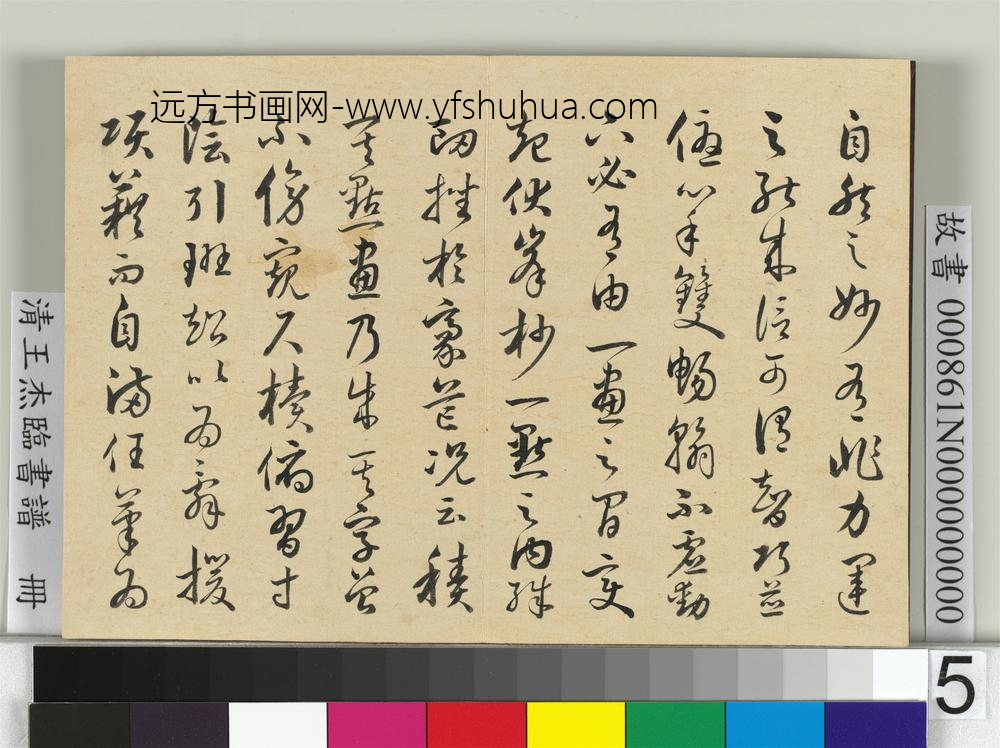 远方书画网-www.yfshuhua.com
自然之妙有非力運
之能成信可謂智巧兼
優心手雙暢翰不虛動
下必有由一畫之間變
起伏峯杪一點之內殊
衄挫於豪芒況云積
其點畫乃成其字曾
不傍窺尺牘俯習寸
陰引班超以為辭援
項籍而自滿任筆為
故書 000861N000000000
清王杰臨書譜 冊
5